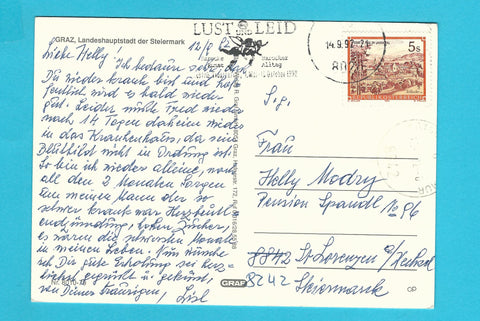 GRAZ, Landeshauptstadt der Steiermark
12/9 92
LUST UND LEID
Barocke
Barocker
Alltag
14.9.92
80
5s
REPUBLIK ÖSTERREICH
Liebe Helly! Ich bedaure sehr, daß
Du wieder krank bist und hof-
fentlich wird es bald wieder
gut. Leider mußte Fred wieder
nach 14 Tagen daheim wieder
in das Krankenhaus, da sein
Blutbild nicht in Ordnung ist.
So bin ich wieder alleine, nach
all den 2 Monaten Sorgen
um meinen Mann der so
schwer krank war. Herzbeutel-
entzündung, hohen Zucker,
es waren die schwersten Monate
in meinem Leben. Nun wünsche
ich Dir gute Erholung sei herz-
lichst gegrüßt und geküsst,
von Deiner traurigen, Lisl
S.g.
Frau
Helly Modry
Pension Spandl No 96
8842 St. Lorenzen
8242
Steiermark
GRAF